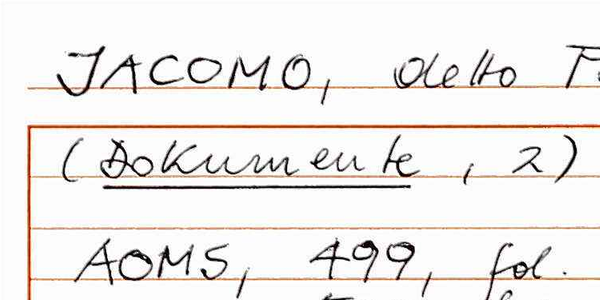 JACOMO, detto
(Dokumente, 2)
AOMS, 499, fol.